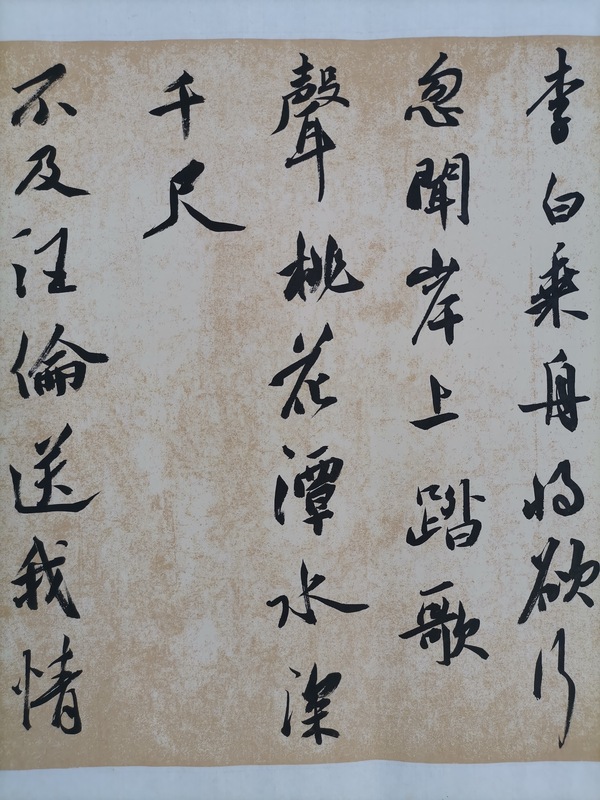 李白乗舟将欲行
忽聞岸上踏歌
聲桃花潭水深
千尺
不及汪倫送我情